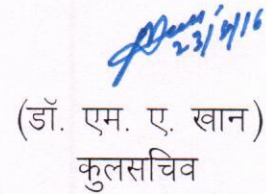 23/6/16
(डॉ. एम. ए. खान)
कुलसचिव